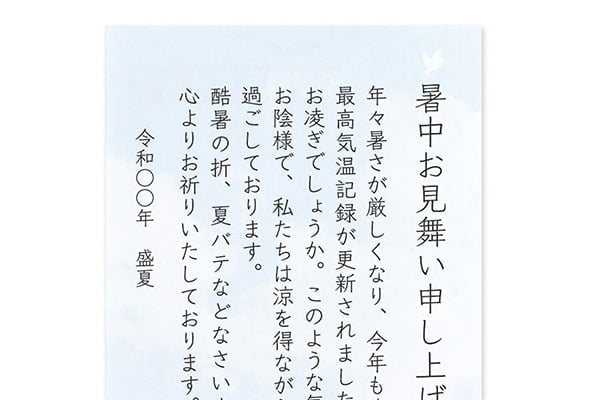 暑中お見舞い申し上げ
年々暑さが厳しくなり、今年も
最高気温記録が更新されました
お凌ぎでしょうか。このような気
お陰様で、私たちは涼を得なが
過ごしております。
酷暑の折、夏バテなどなさい
心よりお祈りいたしております。
令和〇〇年　盛夏